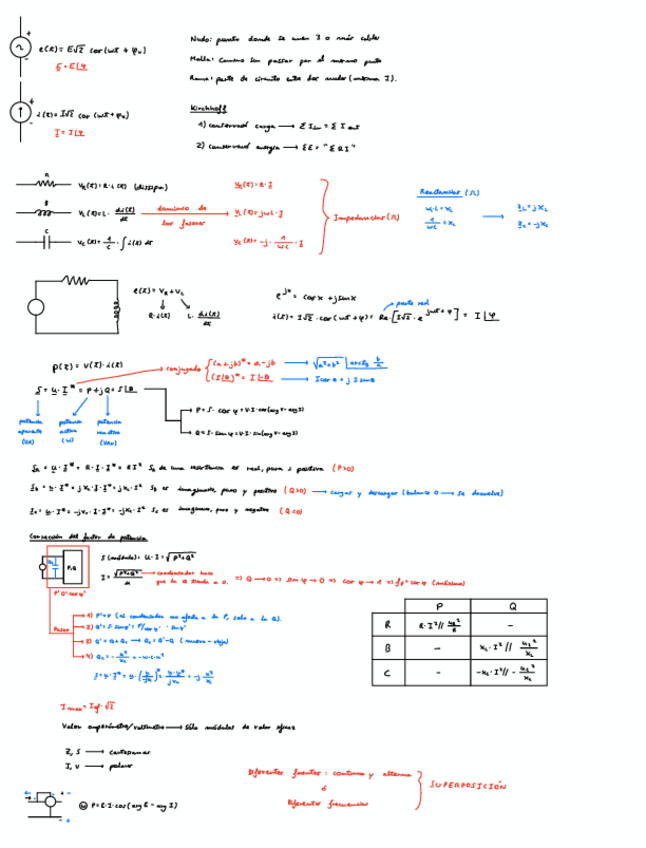 e(t) = E√2 cos(wt + φv)
E = E∟φ
Nudo: punto donde se unen 3 o más cables
Malla: camino sin passar por el mismo punto
Rama: parte de circuito entre dos nudos (misma I).
i(t) = I√2 cos(wt + φv)
I = I∟φ
Kirchhoff
1) conservació carga → Σ I in = Σ I out
2) conservació energia → ΣE = "Σ R I"
R
VR(t) = R · i(t) (dissipa)
VR(t) = R · I
Reactancias (Ω)
B
VL(t) = L · di(t)/dt
dominio de los fasores
VL(t) = jwL · I
Impedancias (Ω)
w · L = XL
ZL = jXL
C
VC(t) = 1/C · ∫ i(t) dt
VC(t) = -j · 1/wC · I
1/wC = XC
ZC = -jXC
e(t) = VR + VL
R · i(t)
L · di(t)/dt
e^jx = cos x + j sin x
parte real
i(t) = I√2 · cos(wt + φ) = Re [I√2 · e^j(wt + φ)] = I∟φ
p(t) = v(t) · i(t)
conjugado
(a + jb)* = a - jb
√a²+b² ∟arctg b/a
(I∟θ)* = I∟-θ
I cos θ + j I sin θ
S = U · I* = P + jQ = S∟θ
potencia aparente (VA)
potencia activa (W)
potencia reactiva (VAr)
P = S · cos φ = V · I · cos(arg V - arg I)
Q = S · sin φ = V · I · sin(arg V - arg I)
SR = U · I* = R · I · I* = R I² SR de una resistencia es real, pura i positiva (P>0)
SB = U · I* = jXL · I · I* = jXL · I² SB es imaginaria, pura y positiva (Q>0) → cargas y descargas (balance 0 → se devuelve)
SC = U · I* = -jXC · I · I* = -jXC · I² SC es imaginaria, pura y negativa (Q<0)
Corrección del factor de potencia
P, Q
S (módulo) = U · I = √P²+Q²
I = √P²+Q² / U
condensador hace que la Q tienda a 0
⇒ Q → 0 ⇒ sin φ → 0 ⇒ cos φ → 1 ⇒ fp = cos φ (máximo)
P' Q' cos φ'
Pasos
1) P' = P (el condensador no afecta a la P, solo a la Q).
2) Q' = S' sin φ' = P/cos φ' · sin φ'
3) Q' = Q + QC → QC = Q' - Q (nueva - vieja)
4) QC = - U²/XC = - W · C · U²
P
Q
R
R · I² // U²/R
-
B
-
XL · I² // U²/XL
C
-
-XC · I² // - U²/XC
I max = Ief · √2
Valor amperímetro/voltímetro → Sólo módulos de valor eficaz
Z, S → cartesianas
I, V → polares
Diferentes fuentes: continua y alterna
ó
Diferentes frecuencias
SUPERPOSICIÓN
P = E · I · cos(arg E - arg I)